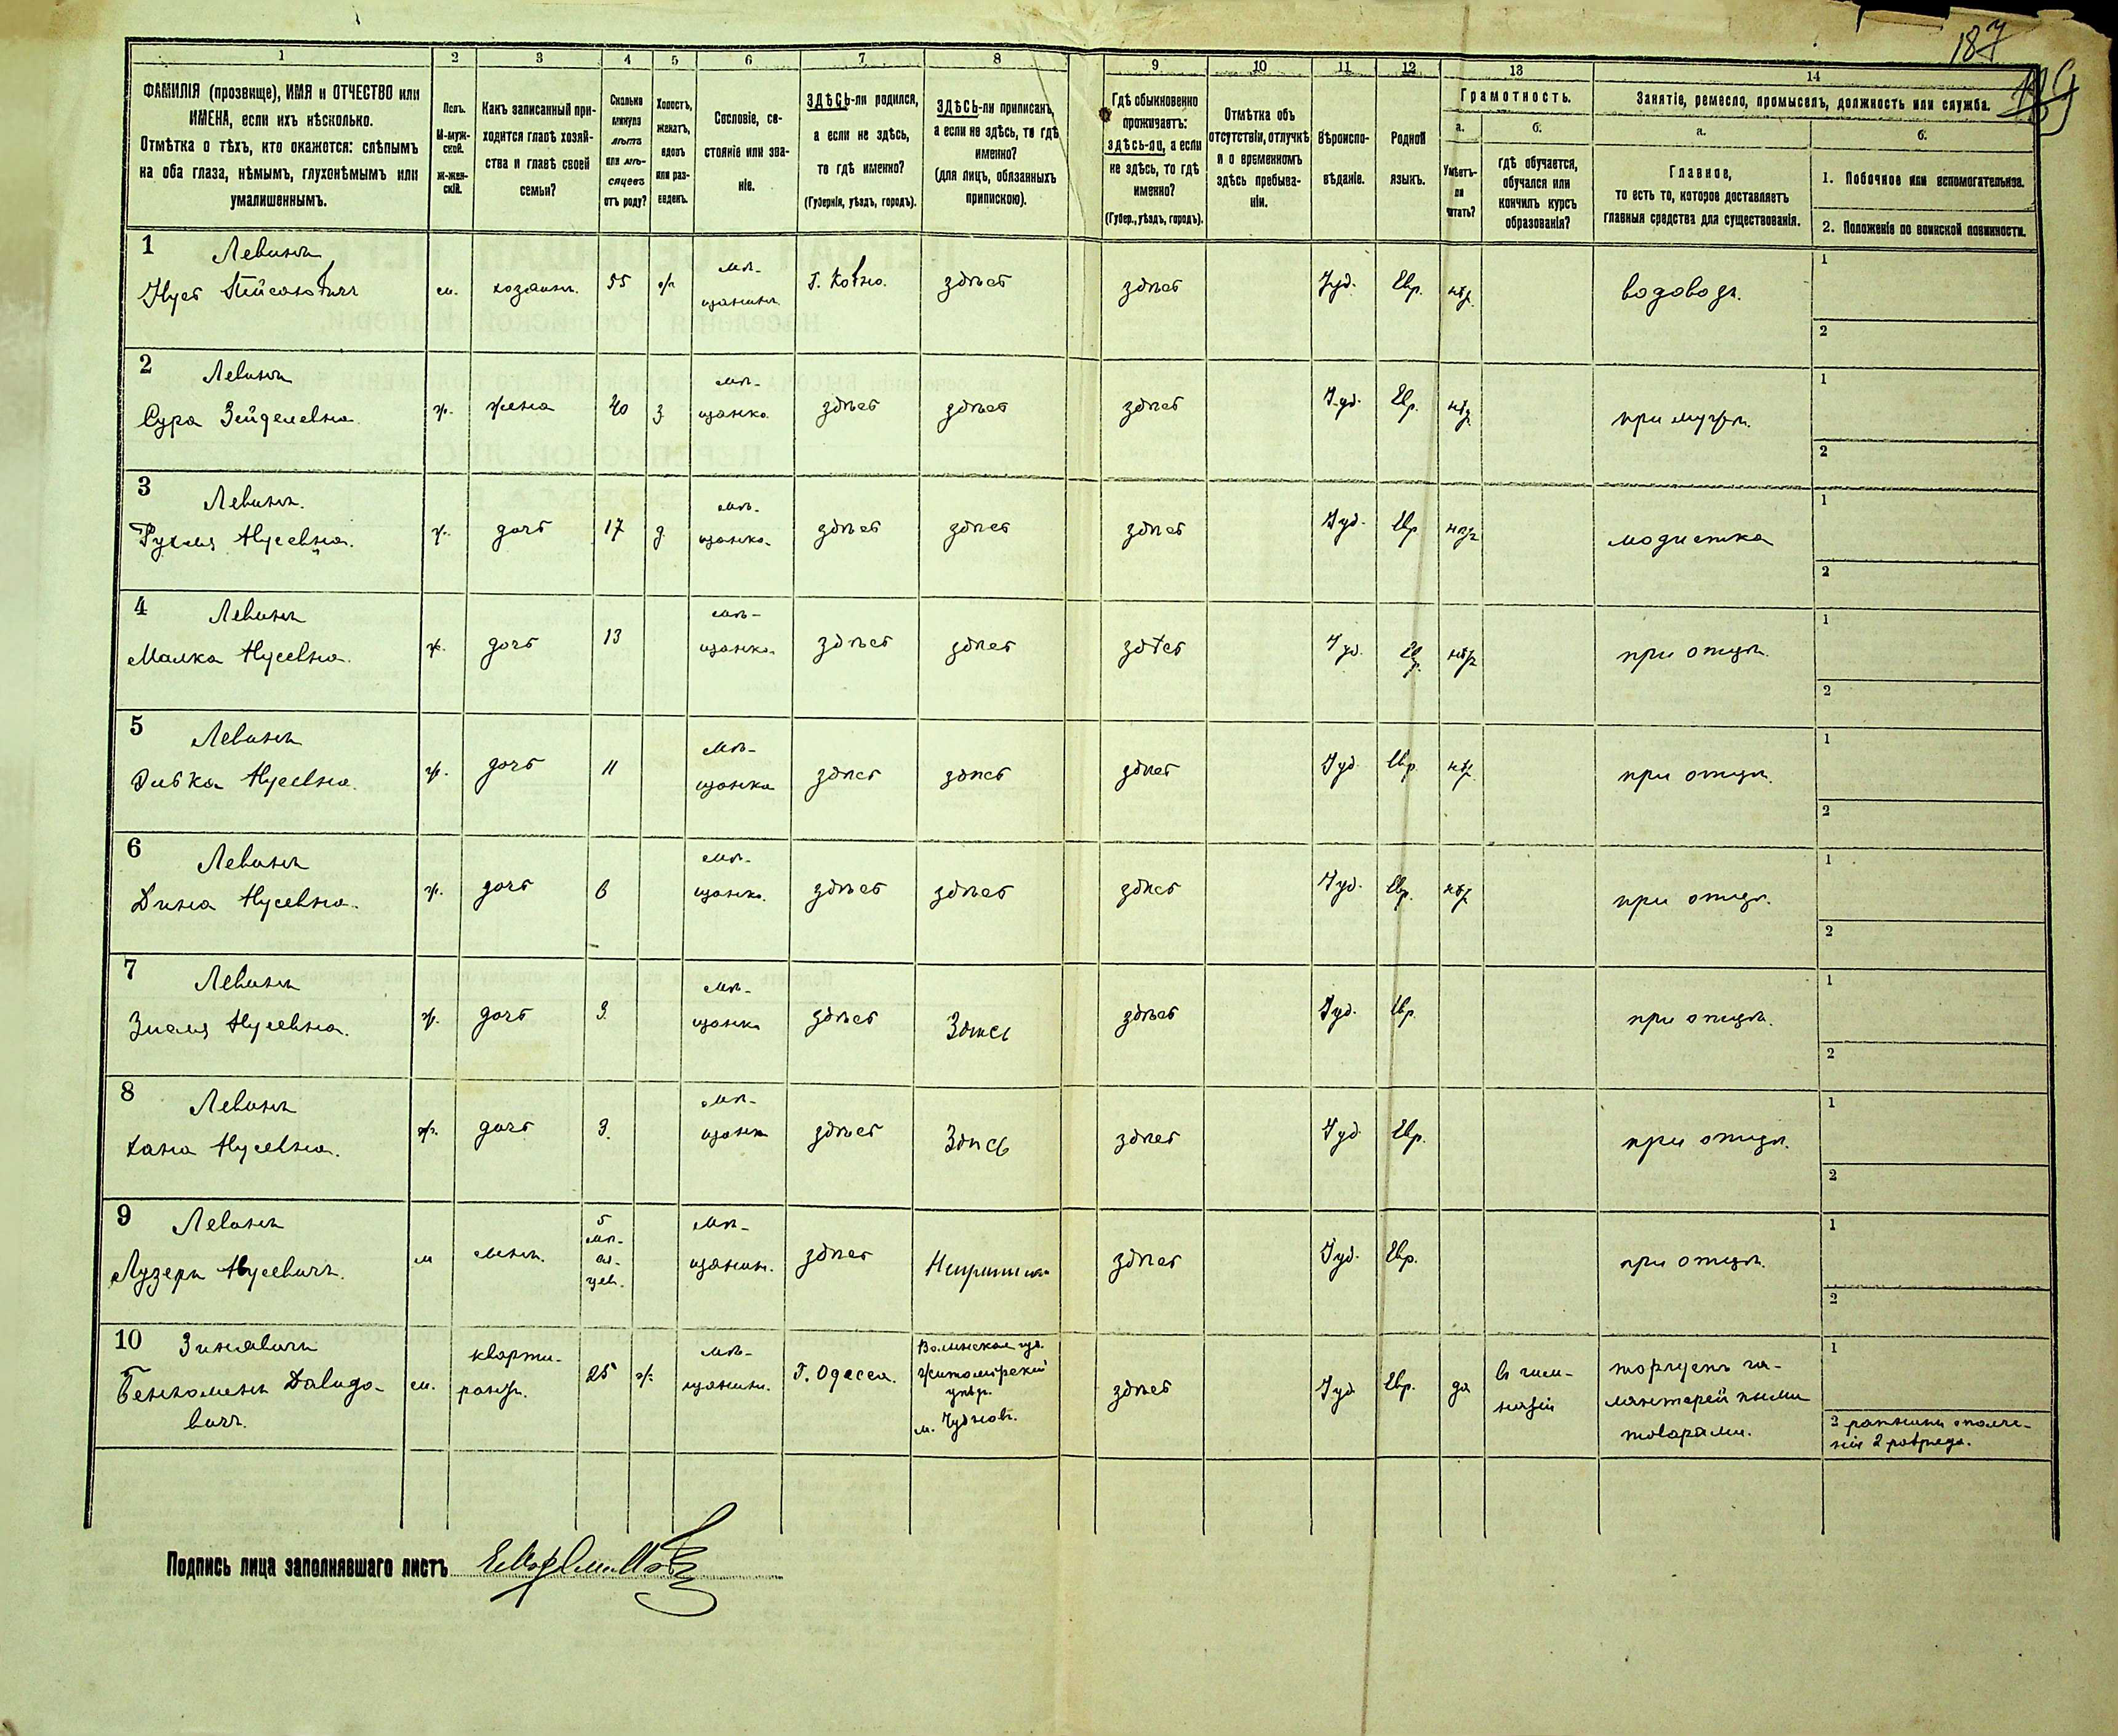 187
1
2
3
4
5
6
7
8
9
10
11
12
13
14
ФАМИЛІЯ (прозвище), ИМЯ и ОТЧЕСТВО или
ИМЕНА, если ихъ нѣсколько.
Отмѣтка о тѣхъ, кто окажется: слѣпымъ
на оба глаза, нѣмымъ, глухонѣмымъ или
умалишеннымъ.
Полъ.
М-муж-
ской.
ж-жен-
скій.
Какъ записанный при-
ходится главѣ хозяй-
ства и главѣ своей
семьи?
Сколько
минуло
лѣтъ
или мѣ-
сяцевъ
отъ роду?
Холостъ,
женатъ,
вдовъ
или раз-
веденъ.
Сословіе, со-
стояніе или зва-
ніе.
ЗДѢСЬ-ли родился,
а если не здѣсь,
то гдѣ именно?
(Губернія, уѣздъ, городъ).
ЗДѢСЬ-ли приписанъ,
а если не здѣсь, то гдѣ
именно?
(для лицъ, обязанныхъ
припискою).
Гдѣ обыкновенно
проживаетъ:
здѣсь-ли, а если
не здѣсь, то гдѣ
именно?
(Губер., уѣздъ, городъ).
Отмѣтка объ
отсутствіи, отлучкѣ
и о временномъ
здѣсь пребыва-
ніи.
Вѣроиспо-
вѣданіе.
Родной
языкъ.
Грамотность.
а.
Умѣетъ-
ли
читать?
б.
гдѣ обучается,
обучался или
кончилъ курсъ
образованія?
Занятіе, ремесло, промыселъ, должность или служба.
а.
Главное,
то есть то, которое доставляетъ
главныя средства для существованія.
б.
1. Побочное или вспомогательное.
2. Положеніе по воинской повинности.
1 Левинъ
Нусъ м. хозяинъ. 55 ж мѣ-
щанинъ Г. Ковно. здѣсь здѣсь Іуд. Евр. нѣт водовозъ. 1
2
2 Левинъ
Сура Зейделевна. ж. жена 40 з. мѣ-
щанка. здѣсь здѣсь здѣсь Іуд. Евр. нѣт при мужѣ. 1
2
3 Левинъ.
Рухля Нусевна. ж. дочь 17 д. мѣ-
щанка. здѣсь здѣсь здѣсь Іуд. Евр. нѣт модистка 1
2
4 Левинъ
Малка Нусевна. ж. дочь 13 мѣ-
щанка. здѣсь здѣсь здѣсь Іуд. Евр. нѣт при отцѣ. 1
2
5 Левинъ
Ривка Нусевна. ж. дочь 11 мѣ-
щанка здѣсь здѣсь здѣсь Іуд. Евр. нѣт при отцѣ. 1
2
6 Левинъ
Дина Нусевна. ж. дочь 6 мѣ-
щанка. здѣсь здѣсь здѣсь Іуд. Евр. нѣт при отцѣ. 1
2
7 Левинъ
Нусевна. ж. дочь 3. мѣ-
щанка здѣсь Здѣсь здѣсь Іуд. Евр. при отцѣ. 1
2
8 Левинъ
Хана Нусевна. ж. дочь 3. мѣ-
щанка здѣсь Здѣсь здѣсь Іуд. Евр. при отцѣ. 1
2
9 Левинъ
Лузеръ Нусевичъ. м 5
мѣ-
ся-
цев. мѣ-
щанин. здѣсь здѣсь Іуд. Евр. при отцѣ. 1
2
10
Давидо-
вичъ. м. кварти-
рантъ. 25 ж. мѣ-
щанинъ. Г. Одесса. Волынская губ.
Житомирскій
уѣзд.
м. Чудновъ. здѣсь Іуд. Евр. да в гим-
назіи торгуетъ га-
лантерейными
товарами. 1
2 ратникъ ополче-
нія 2 разряда.
Подпись лица заполнявшаго листъ